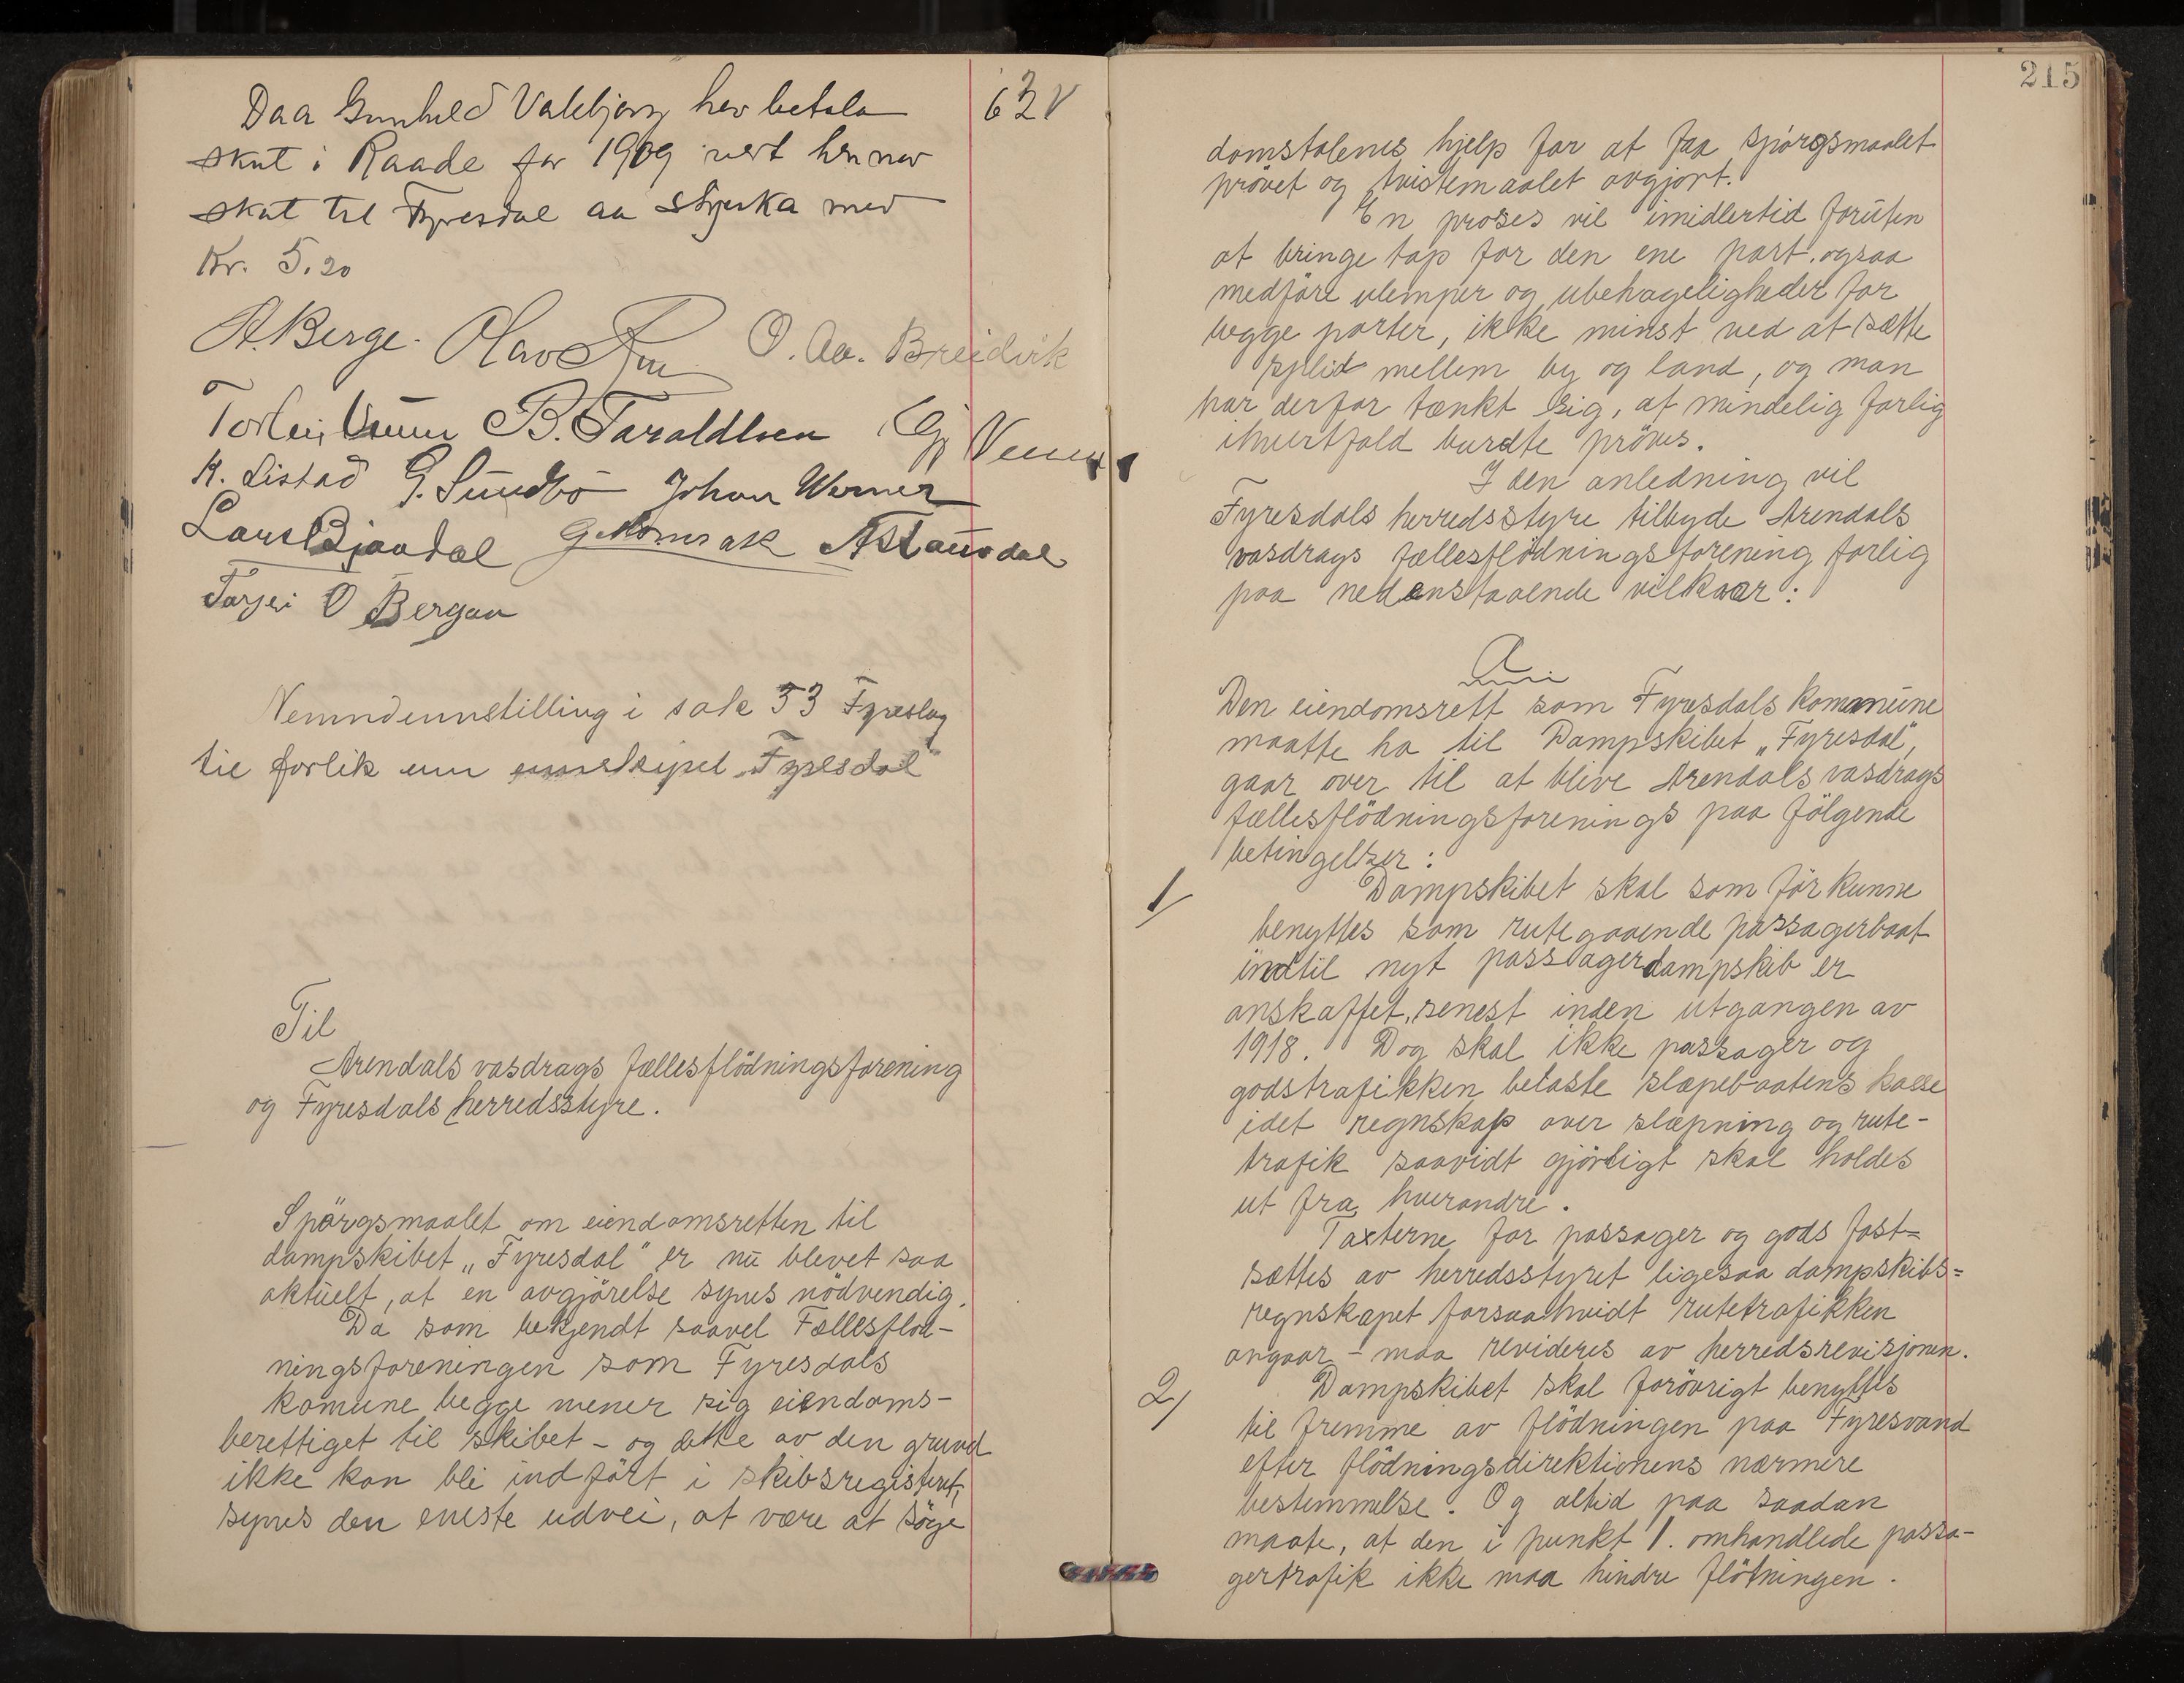 Daa Gunhild Valebjørg hev betala
63 V
skat i Raade for 1909 vert hennar
skat til Fyresdal aa stryka med
Kr. 5.20
A. Berge. Olav O. Aa. Breidvik
B. Taraldlien
K. Listad G. Sundbö Johan Werner
Lars Bjaadal G. Momrak
Torjei O Bergan
Nemndeinnstilling i sak 53 Fyreslag
til forlik um "Fyresdal"
Til
Arendals vasdrags fællesflödningsforening
og Fyresdals herredsstyre.
Spörgsmaalet om eiendomsretten til
dampskibet „Fyresdal" er nu blevet saa
aktuelt, at en avgjörelse synes nödvendig.
Da som bekjendt saavel Fællesflöd-
ningsforeningen som Fyresdals
komune begge mener sig eiendoms-
berettiget til skibet - og dette av den grund
ikke kan bli indfört i skibsregisteret,
synes den eneste udvei, at være at söge
215
domstolenes hjelp for at faa spörgsmaalet
prövet og tvistemaalet avgjort.
En proses vil imidlertid foruten
at bringe tap for den ene part, ogsaa
medföre ulemper og ubehageligheder for
begge parter, ikke minst ved at sætte
splid mellem by og land, og man
har derfor tænkt sig, at mindelig forlig
ihvertfald burdte pröves.
I den anledning vil
Fyresdals herredsstyre tilbyde Arendals
vasdrags fællesflödningsforening forlig
paa nedenstaaende vilkaar:
A
Den eiendomsrett som Fyresdals komunune
maatte ha til Dampskibet „Fyresdal",
gaar over til at blive Arendals vasdrags
fællesflödningsforenings paa fölgende
betingelser:
1/ Dampskibet skal som för kunne
benyttes som rutegaaende passagerbaat
indtil nyt passagerdampskib er
anskaffet, senest inden utgangen av
1918. Dog skal ikke passager og
godstrafikken belaste slæpebaatens kasse
idet regnskap over slæpning og rute-
trafik saavidt gjörligt skal holdes
ut fra hverandre.
Taxterne for passager og gods fast=
sættes av herredsstyret ligesaa dampskibs=
regnskapet forsaahvidt rutetrafikken
angaar - maa revideres av herredsrevisjonen.
2/ Dampskibet skal forövrigt benyttes
til fremme av flödningen paa Fyresvand
efter flödningsdirektionens nærmere
bestemmelse. Og altid paa saadan
maate, at den i punkt 1. omhandlede passa-
gertrafik ikke maa hindre flötningen.